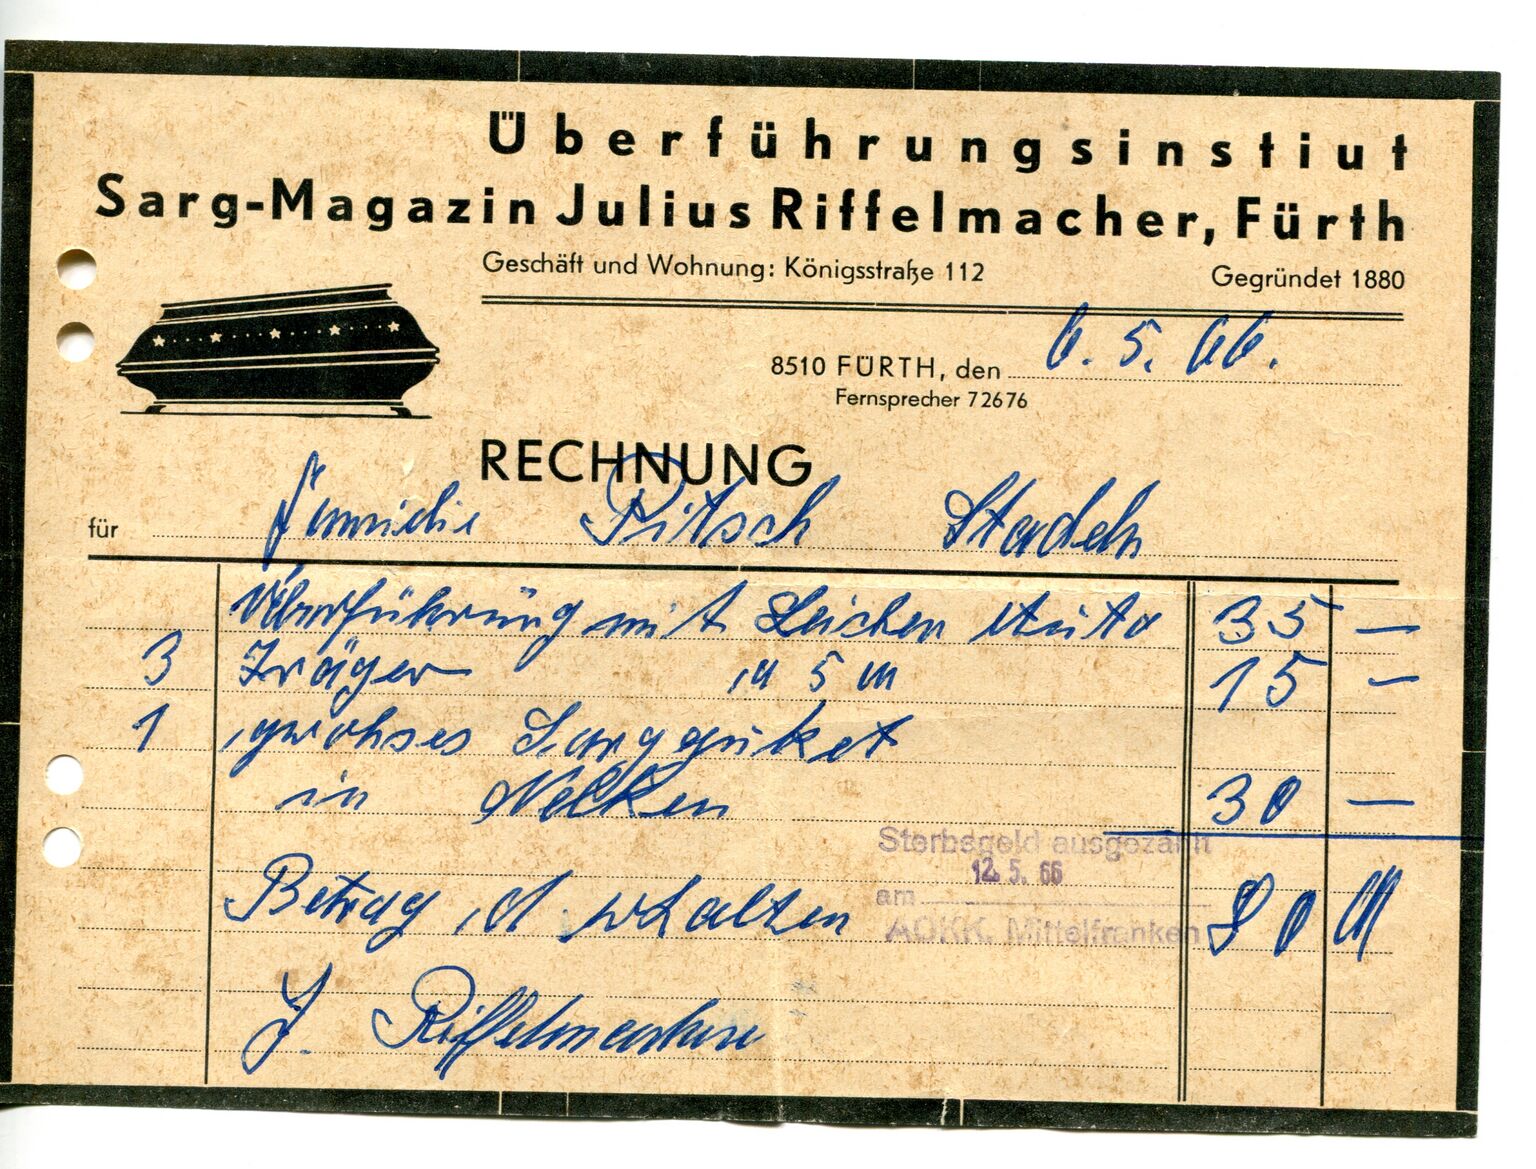 Überführungsinstiut
Sarg-Magazin Julius Riffelmacher, Fürth
Geschäft und Wohnung: Königsstraße 112 Gegründet 1880
8510 FÜRTH, den 6. 5. 66.
Fernsprecher 72676
RECHNUNG
für Familie Pitsch Stadeln
Überführung mit Leichen Auto 35 —
3 Träger a 5 M 15 —
1 großes Sargbuket
in Nelken 30 —
Sterbegeld ausgezahlt
am 12. 5. 66
AOKK. Mittelfranken
Betrag erhalten 80 M
J. Riffelmacher